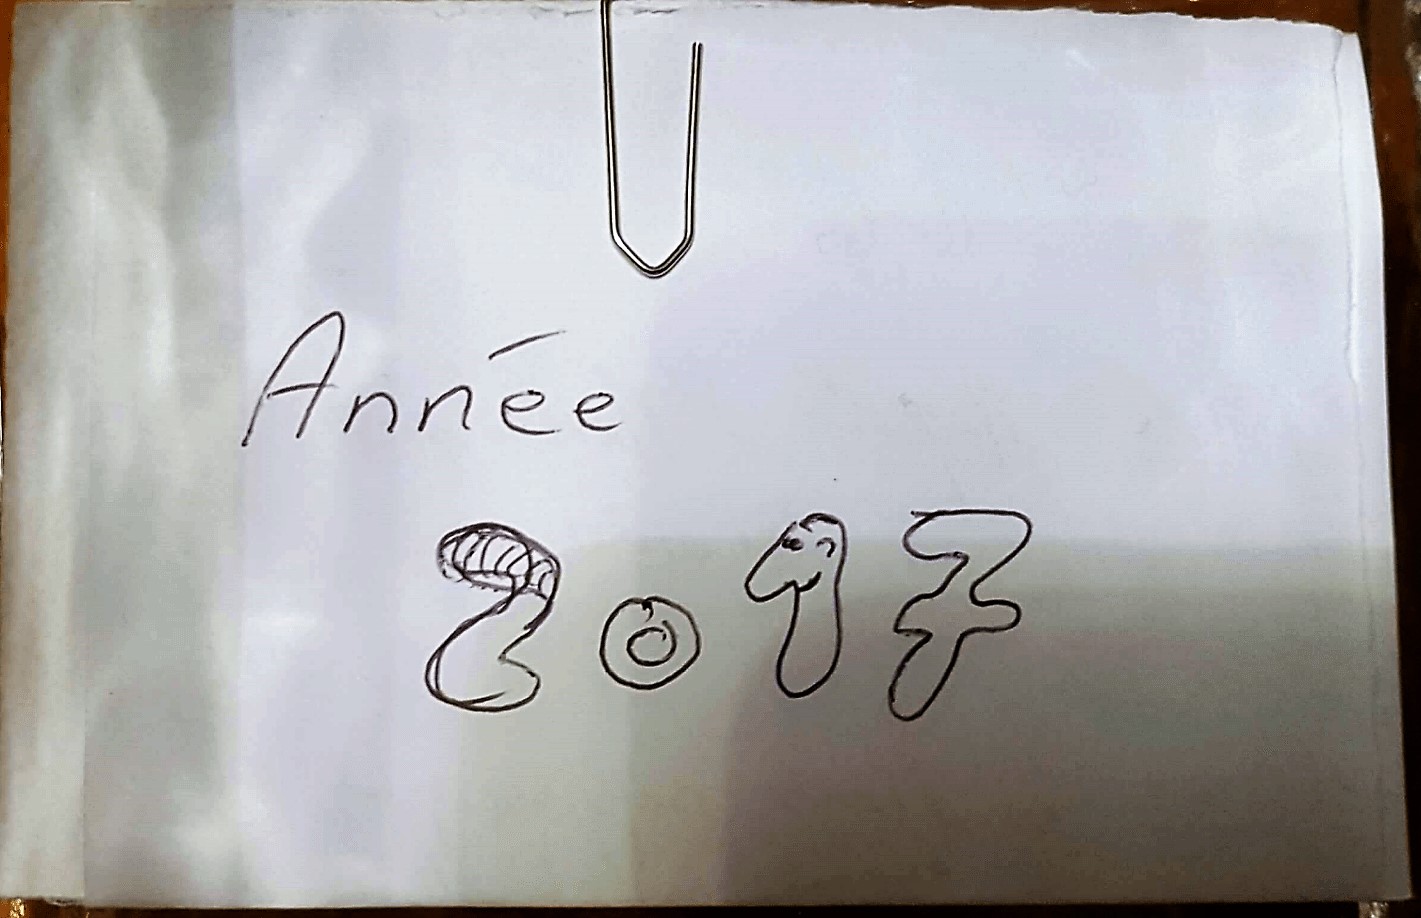 Année
2017